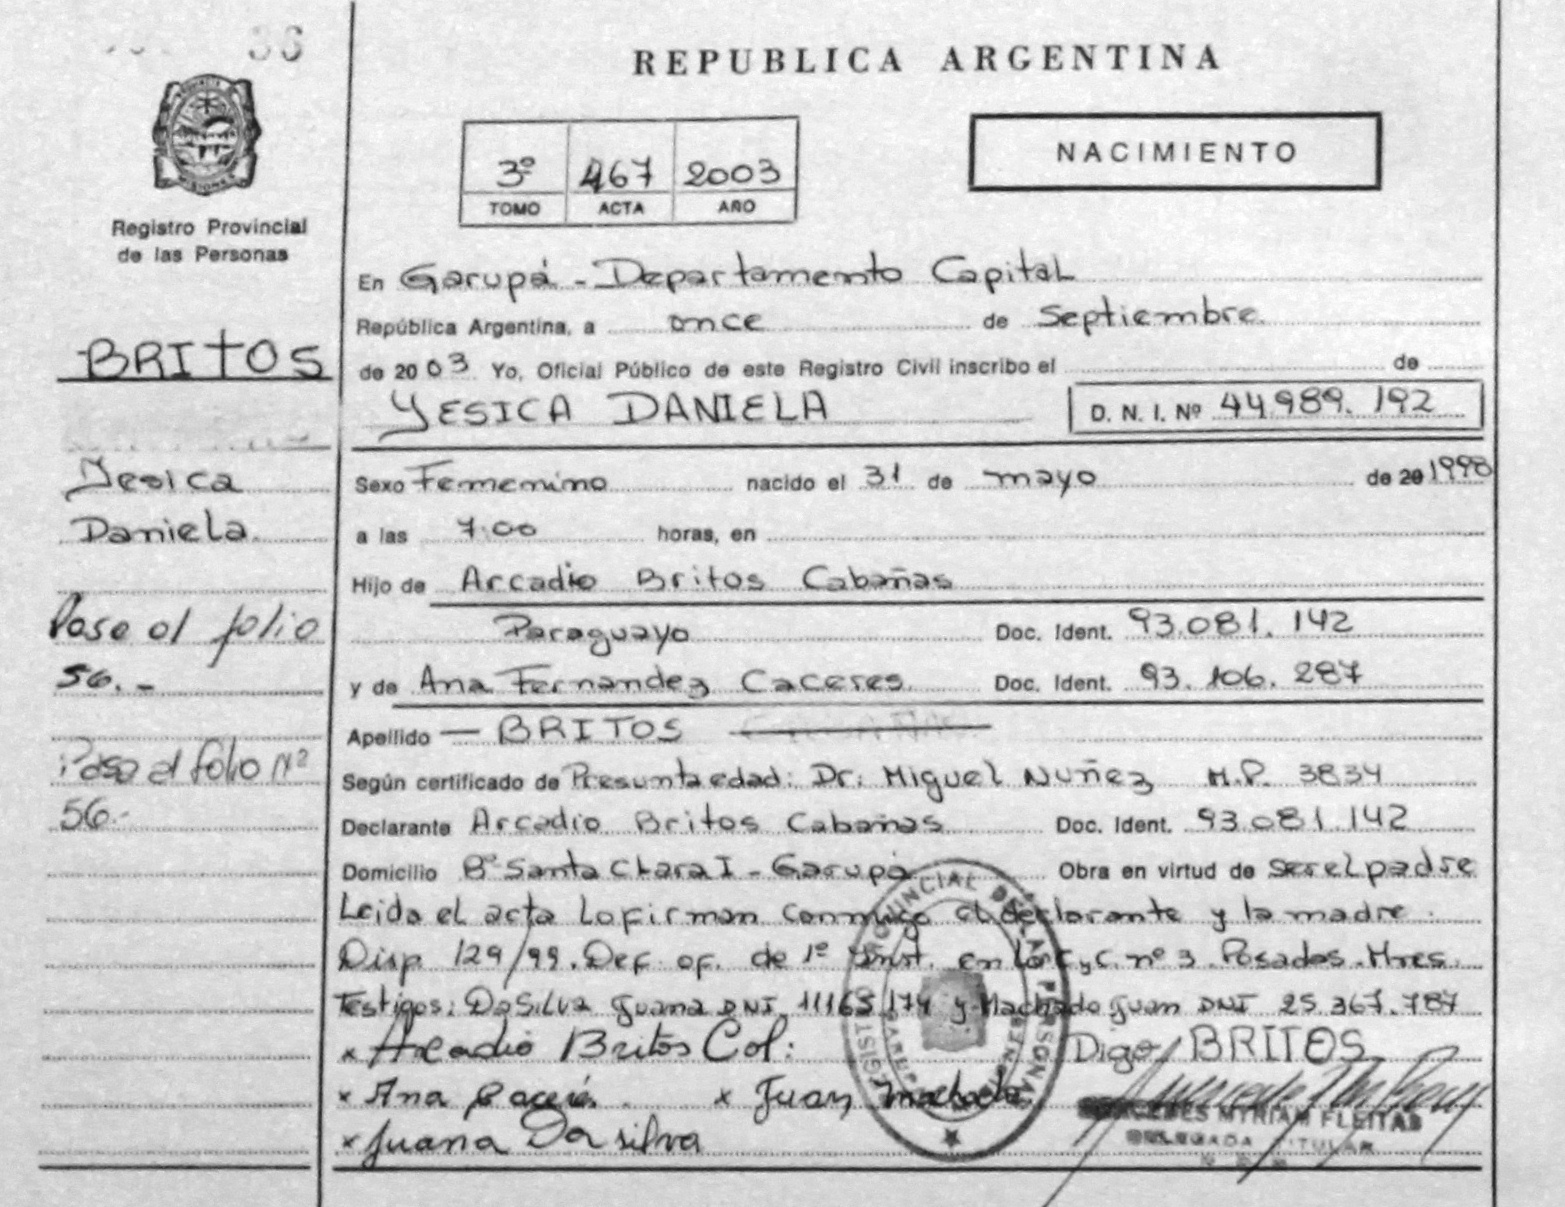 36
REPUBLICA ARGENTINA
MISIONES
Registro Provincial
de las Personas
3º 467 2003
TOMO ACTA AÑO
NACIMIENTO
BRITOS
Yesica
Daniela.
Pase al folio
56.-
Pasa al folio Nº
56.-
En Garupá - Departamento Capital
República Argentina, a once de Septiembre.
de 2003 Yo, Oficial Público de este Registro Civil inscribo el de
YESICA DANIELA D. N. I. Nº 44.989.192
Sexo Femenino nacido el 31 de mayo de 20 1998
a las 7:00 horas, en
Hijo de Arcadio Britos Cabañas
Paraguayo Doc. Ident. 93.081.142
y de Ana Fernandez Caceres. Doc. Ident. 93.106.287
Apellido — BRITOS
Según certificado de Presunta edad: Dr. Miguel Nuñez M.P. 3834
Declarante Arcadio Britos Cabañas Doc. Ident. 93.081.142
Domicilio Bº Santa Clara I - Garupá Obra en virtud de ser el padre
Leida el acta Lo firman conmigo el declarante y la madre.
Disp. 129/99. Def. of. de 1º Inst. en lo C y C. nº 3. Posadas. Mnes.
Testigos: Da Silva Juana DNI 11.163.174 y Machado Juan DNI 25.367.787
x Arcadio Britos Col: Digo BRITOS
x Ana Caceres. x Juan Machado
x Juana Da silva
MYRIAM FLEITAS
DELEGADA TITULAR
REGISTRO PROVINCIAL DE LAS PERSONAS